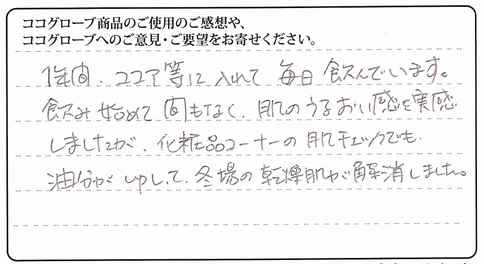 ココグローブ商品のご使用のご感想や、
ココグローブへのご意見・ご要望をお寄せください。
1年間、ココア等に入れて毎日飲んでいます。
飲み始めて間もなく、肌のうるおい感を実感
しましたが、化粧品コーナーの肌チェックでも
油分がupして、冬場の乾燥肌が解消しました。